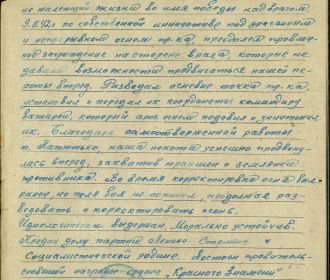 не жалеющий жизни во имя победы над врагом
9.11.42г. по собственной инициативе под ураганным
и непрерывном огнем пр-ка, преодолел проволоч-
ное заграждение на стороне врага, которые не
давали возможности продвигаться нашей пе-
хоты вперед. Разведал огневые точки пр-ка,
установил и передал их координаты командиру
батареи, который арт огнем подавил и уничтожил
их. Благодаря самоотверженной работы
т. наша пехота успешно продвину-
лась вперед, захватив траншеи и землянки
противника. Во время корректировки огня был
ранен, но поля боя не покинул, продолжая раз-
ведовать и корректировать огонь.
Идеологически выдержан. Морально устойчив.
Предан делу партии Ленина - Сталина и
Социалистической родине. Достоин правитель-
ственной награды ордена "Красного Знамени"